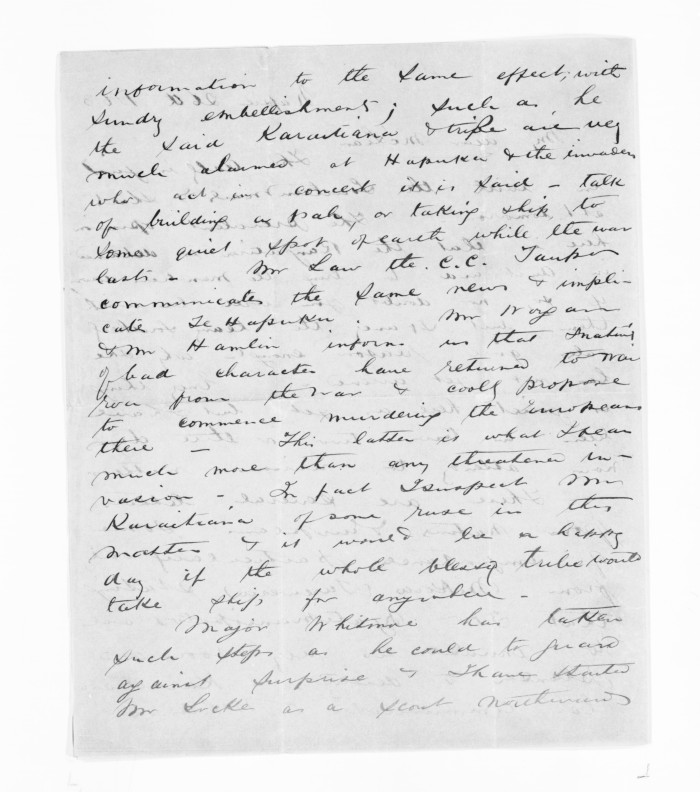 information to the same effect, with
sundry embellishments; such as, he
the said Karaitiana & tribe are very
much alarmed at Hapuku & the invaders
who act in concert it is said – talk
of building a pah, or taking ship to
some quiet spot of earth while the war
lasts – Mr Law the C.C. Taupo
communicates the same news & impli-
cate Te Hapuku. Mr
& Mr Hamlin inform us that Natives
of bad character have returned to Wai
roa from the war & coolly propose
to commence murdering the Europeans
there – This latter is what I fear
much more than any threatened in-
vasion – In fact I suspect Mr
Karaitiana of some ruse in this
matter & it would be a happy
day if the whole blessed tribe would
take ship for anywhere –
Major Whitmore has taken
such steps as he could to guard
against surprise & I have started
Mr Locke as a scout northwards